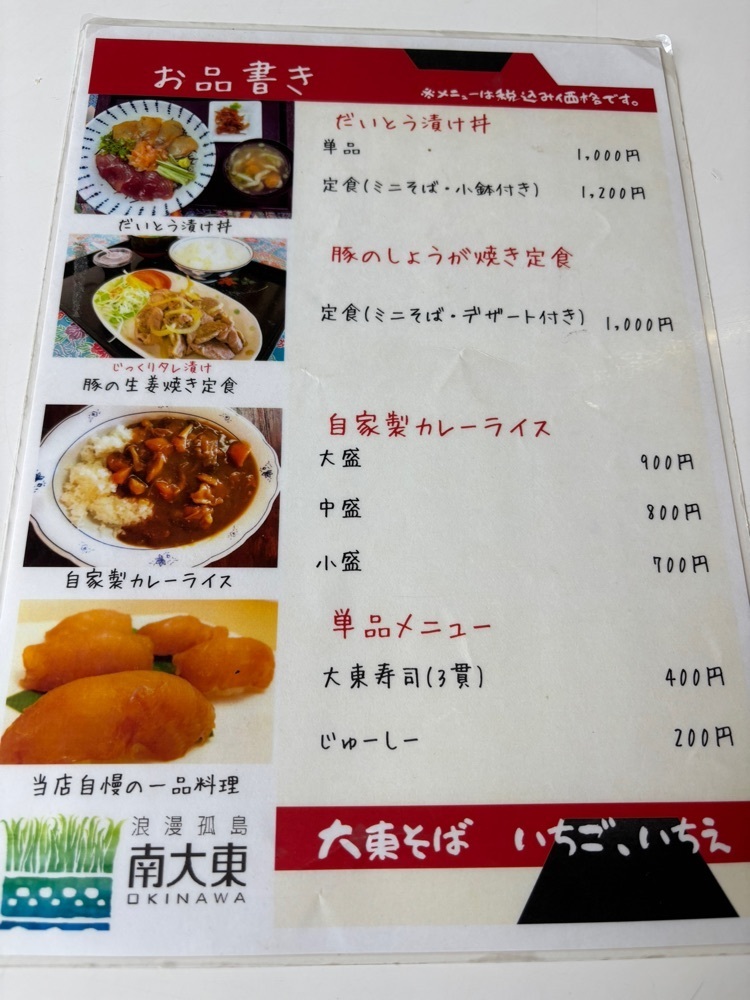 お品書き
※メニューは税込み価格です。
だいとう漬け丼
単品 1,000円
定食(ミニそば・小鉢付き) 1,200円
だいとう漬け丼
豚のしょうが焼き定食
定食(ミニそば・デザート付き) 1,000円
じっくりタレ漬け
豚の生姜焼き定食
自家製カレーライス
大盛 900円
中盛 800円
小盛 700円
自家製カレーライス
単品メニュー
大東寿司(3貫) 400円
じゅーしー 200円
当店自慢の一品料理
浪漫孤島
南大東
OKINAWA
大東そば いちご、いちえ